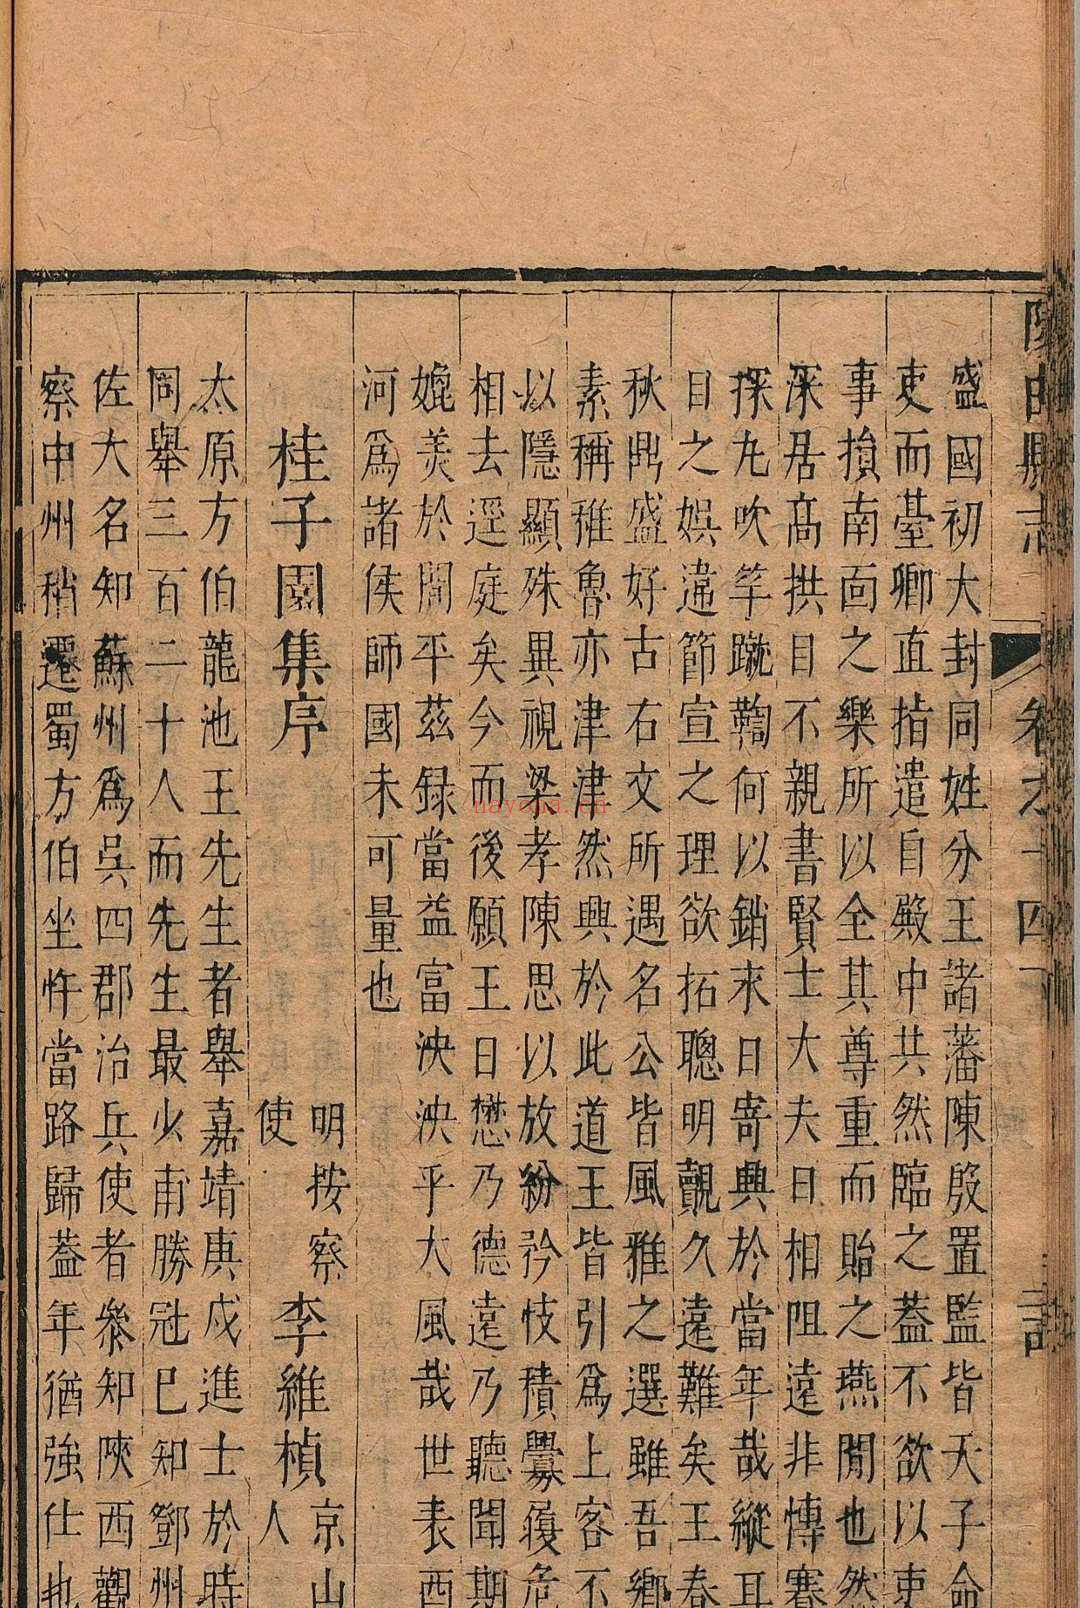 盛國初大封同姓分王諸藩陳殷置監皆天子命
吏而臺卿直指遣自殿中共然臨之蓋不欲以吏
事損南面之樂所以全其尊重而貽之燕閒也然
深居高拱目不親書賢士大夫日相阻遠非慱塞
探丸吹竽蹴鞫何以銷永日寄興於當年哉縱耳
目之娛違節宣之理欲拓聰明覿久遠難矣王春
秋鼎盛好古右文所遇名公皆風雅之選雖吾鄉
素稱推魯亦津津然興於此道王皆引爲上客不
以隱顯殊異視梁孝陳思以放紛矜忮積釁覆危
相去逕庭矣今而後願王日懋乃德遠乃聽聞期
媲美於閒平茲録當益富泱泱乎大風哉世表西
河爲諸侯師國未可量也
桂子園集序
明按察使 李維楨 京山人
太原方伯龍池王先生者舉嘉靖庚戌進士於時
同舉三百二十人而先生最少甫勝冠已知鄧州
佐大名知蘇州爲吳四郡治兵使者叅知陝西觀
察中州稍遷蜀方伯坐忤當路歸蓋年猶強仕也
卷之十四
nayona.cn